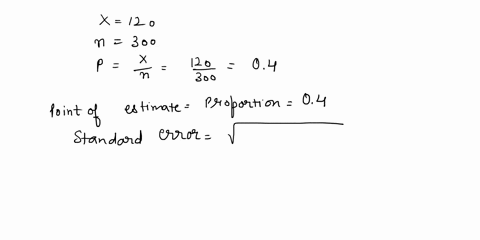 X = 120
n = 300
P = X/n = 120/300 = 0.4
Point of estimate = Proportion = 0.4
Standard error = √